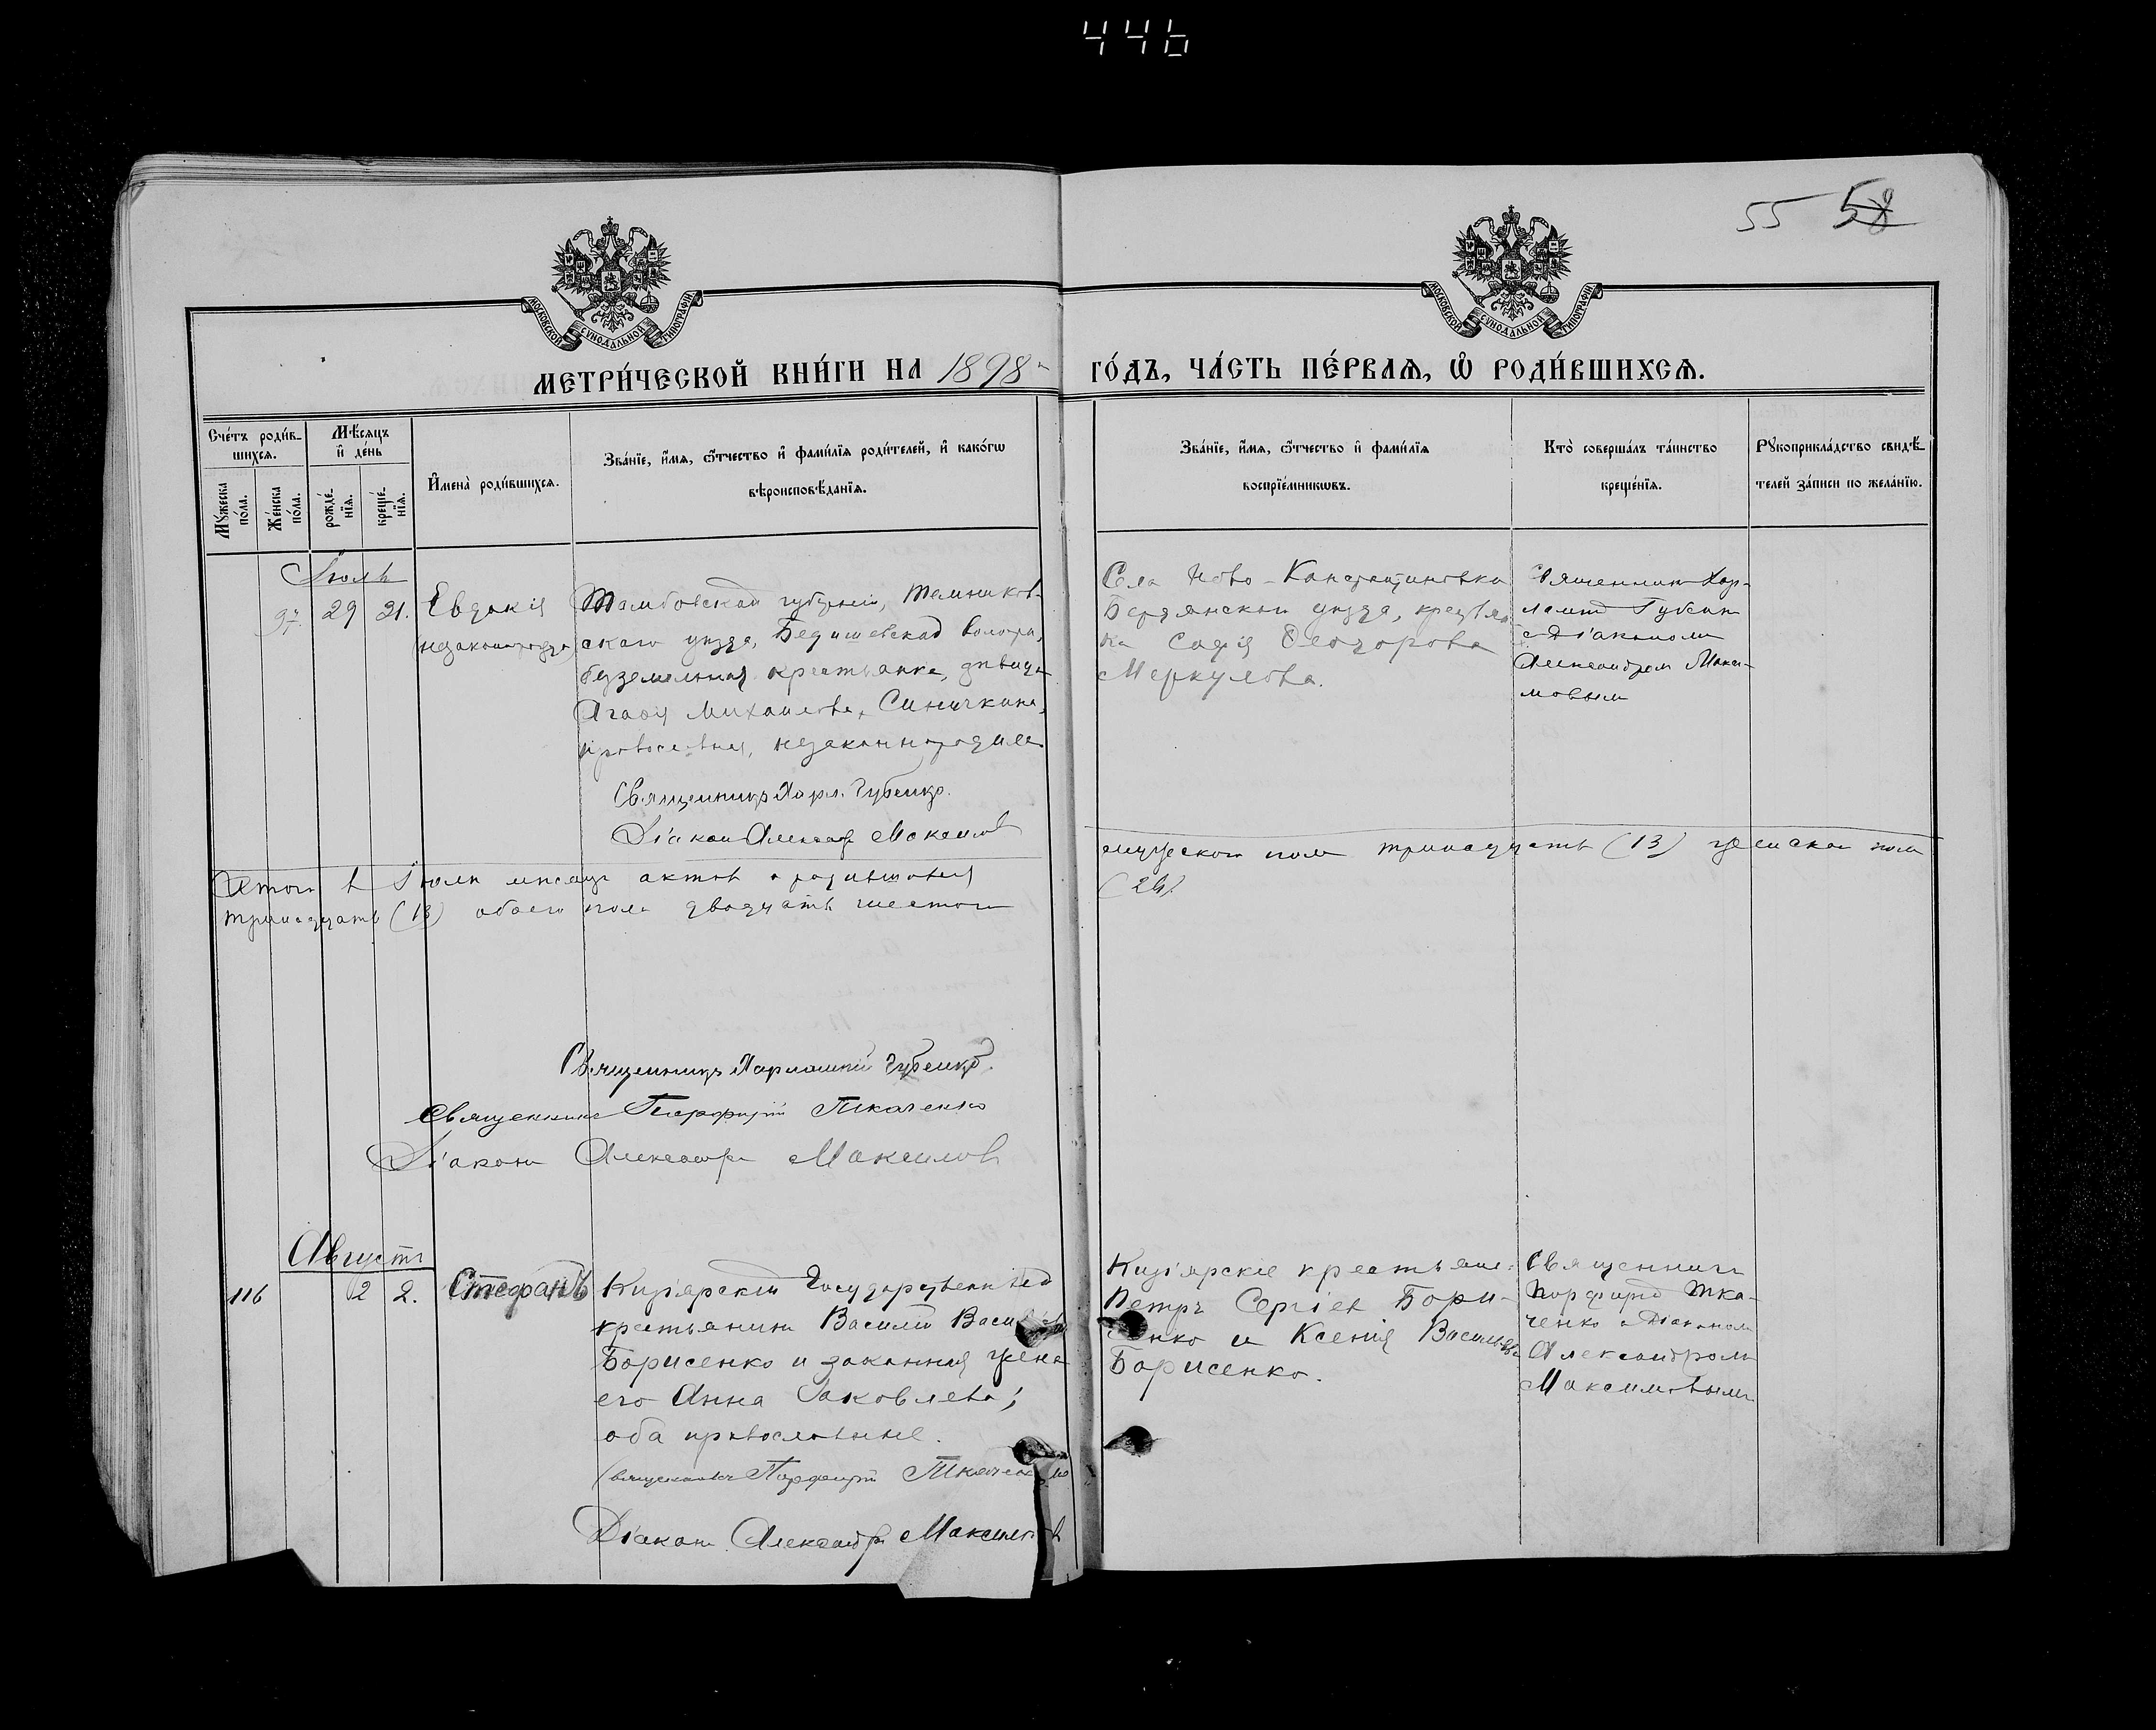 446
55 58
МОСКОВСКОЙ СУНОДАЛЬНОЙ ТИПОГРАФІИ
МОСКОВСКОЙ СУНОДАЛЬНОЙ ТИПОГРАФІИ
МЕТРИ́ЧЕСКОЙ КНИ́ГИ НА 1898
ГО́ДЪ, ЧА́СТЬ ПЕ́РВАѦ, Ѡ РОДИ́ВШИХСѦ.
Сче́тъ роди́в-
шихсѧ.
Мꙋ́жеска по́ла.
Же́нска по́ла.
Мѣ́сѧцъ
и҆ де́нь
рожде́-
нїѧ.
креще́-
нїѧ.
И҆мена̀ роди́вшихсѧ.
Зва́нїе, и҆́мѧ, ѻ҆́тчество и҆ фами́лїѧ роди́телей, и҆ како́гѡ
вѣроисповѣ́данїѧ.
Зва́нїе, и҆́мѧ, ѻ҆́тчество и҆ фами́лїѧ
воспрїе́мникѡвъ.
Кто̀ соверша́лъ та́инство
креще́нїѧ.
Рꙋкоприкла́дство свидѣ́-
телей за́писи по жела́нїю.
Іюль
97. 29 31. Евдокія
Тамбовской губерніи, Темников-
скаго уѣзда, волости,
безземельная крестьянка, дѣвица
Агафія Михаилова Синичкина,
православная, незаконнородила
Священникъ Харл. Губенко.
Діаконъ Александръ Максимовъ
Села Ново-Константиновки
Бердянскаго уѣзда, крестьян-
ка Софія Ѳеодорова
Меркулова.
Священникъ Хар-
лампій Губенко
с Діакономъ
Александромъ Макси-
мовымъ
Итого в Іюлѣ мѣсяцѣ актовъ о родившихся
мужеского пола тринадцать (13) женска пола
тринадцать (13) обоего пола двадцать шесть
(26).
Священникъ Харлампій Губенко.
Священникъ Порфирій Ткаченко
Діаконъ Александръ Максимовъ
Августъ
116 2 2. Стефанъ
Кизіярскій Государственный
крестьянинъ Василій
Борисенко и законная жена
его Анна Іаковлева;
оба православные.
Священникъ Порфирій Ткаченко
Діаконъ Александръ Максимовъ
Кизіярскіе крестьяне:
Петръ Сергіевъ Бори-
сенко и Ксенія Васильева
Борисенко.
Священникъ
Порфирій Тка-
ченко с Діакономъ
Александромъ
Максимовымъ